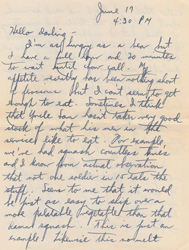 June 19
4:30 PM
Hello Darling -
I'm as hungry as a bear but
I have a full hour and 30 minutes
to wait until chow call. My
appetite lately has been nothing short
of ferocious but I can't seem to get
enough to eat. Sometimes I think
that Uncle Sam hasn't taken very good
stock of what his men in the
service like to eat. For example,
we've had squash countless times
and I know from actual observation
that not one soldier in 10 eats the
stuff. Seems to me that it would
be just as easy to dish over a
more palatable vegetable than that
damned squash. This is just an
example because this